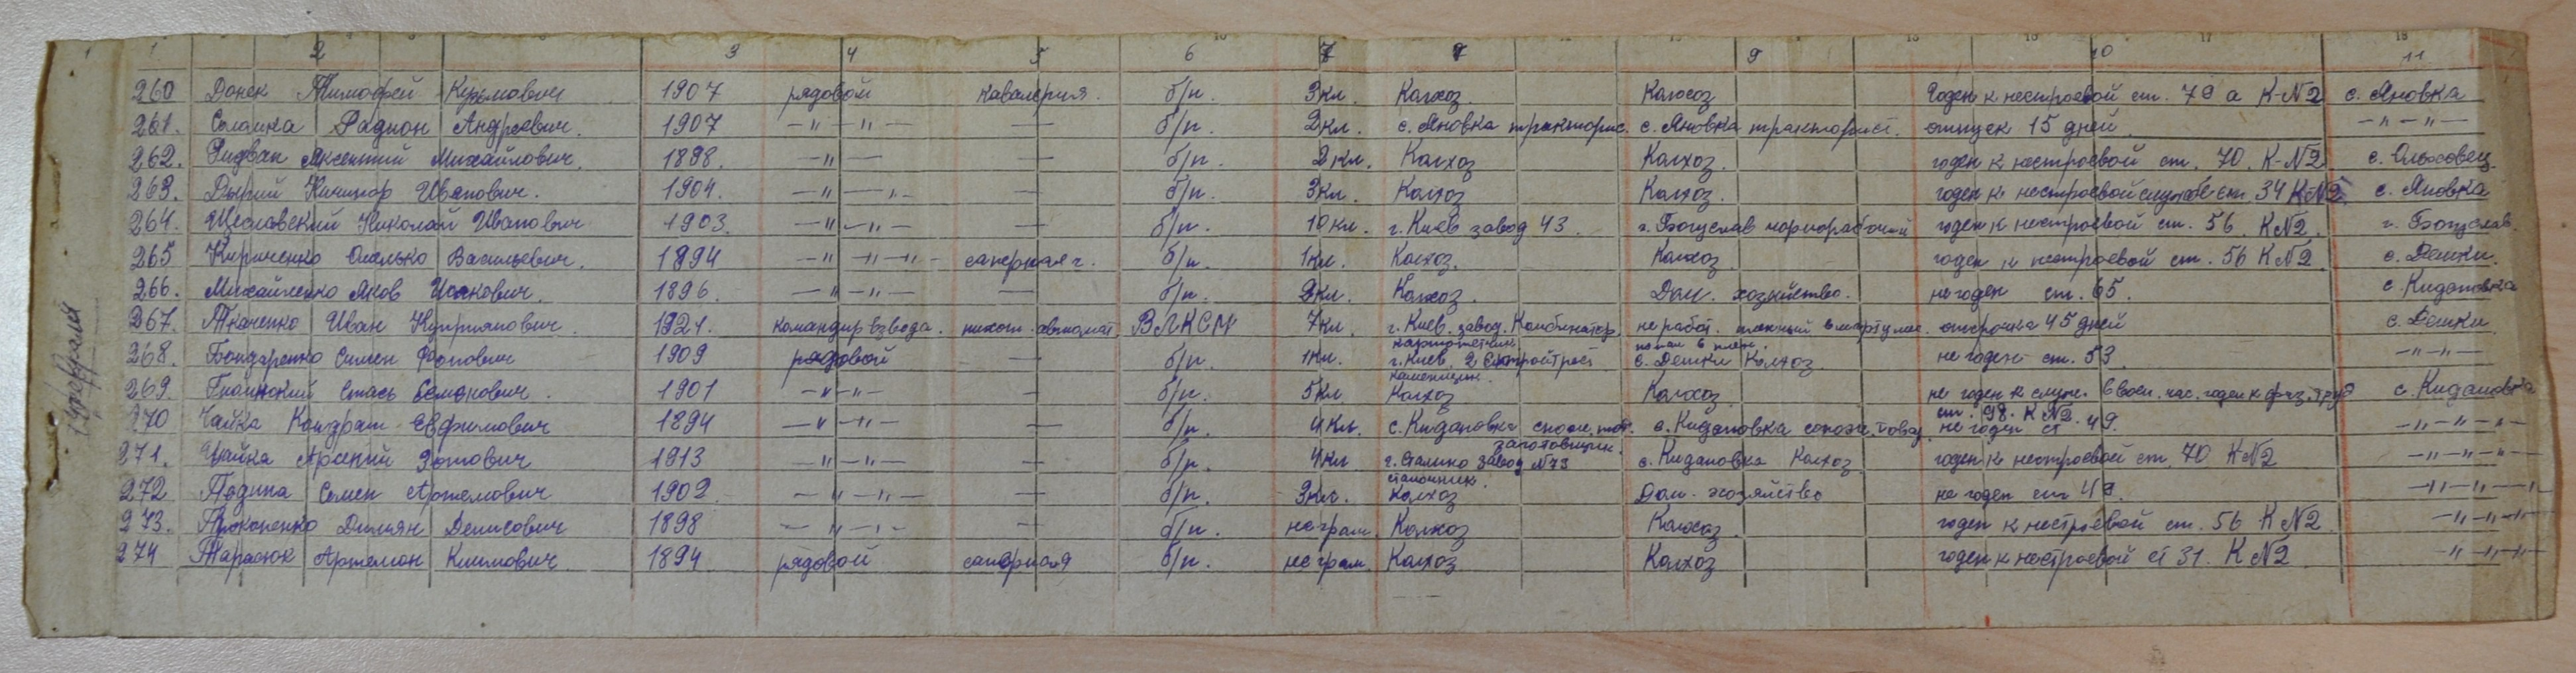 1 2 3 4 5 6 7 8 9 10 11
260 Донек Тимофей Кузьмович 1907 рядовой кавалерия. б/п. 3 кл. Колхоз. Колхоз Годен к нестроевой ст. 79 а К-№2 с. Яновка
261. Соломка Радион Андреевич. 1907 —"—"— — б/п. 2 кл. с. Яновка тракторис. с. Яновка тракторист. отпуск 15 дней. —"—"—
262. Аксентий Михайлович. 1898. —"— — б/п. 2 кл. Колхоз Колхоз. годен к нестроевой ст. 70. К-№2 с. Ольховец
263. Никинор Иванович. 1904. —"—"— — б/п. 3 кл. Колхоз Колхоз. годен к нестроевой службе ст. 34 К№2. с. Яновка
264. Щесловский Николай Иванович 1903. —"—"— — б/п. 10 кл. г. Киев завод 43. г. Богуслав чернорабочий годен к нестроевой ст. 56. К№2. г. Богуслав
265 Кириченко Олелько Васильевич. 1894 —"—"—"— саперная ч. б/п. 1 кл. Колхоз. Колхоз годен к нестроевой ст. 56 К№2. с. Дешки.
266. Михайленко Яков Исакович. 1896. —"—"— — б/п. 2 кл. Колхоз. Дом. хозяйство. не годен ст. 65. с. Кидановка
267. Ткаченко Иван Куприянович. 1921. командир взвода. пихот. автомат. ВЛКСМ 7 кл. г. Киев. завод. Комбинатор не работ. отсрочка 45 дней с. Дешки
попал в плен.
268. Бондаренко Симен Фопович 1909 рядовой — б/п. 1 кл. г. Киев с. Дешки Колхоз не годен ст. 53. —"—"—
каменщик.
269. Стась Семонович. 1901 —"—"— — б/п. 5 кл Колхоз Колхоз не годен к служ. в воен. час. годен к физ. труд с. Кидановка
ст. 98. К№2.
270 Чайка Кондрат Евфимович 1894 —"—"— — б/п. 4 кл. с. Кидановка с. Кидановка не годен ст 49. —"—"—"—
заготовщик.
271. Чайка Арсений Зотович 1913 —"—"— — б/п. 4 кл г. Сталино завод №73 с. Кидановка Колхоз годен к нестроевой ст. 70 К№2 —"—"—"—
станочник.
272 Педина Семен Артемович 1902. —"—"— — б/п. 3 кл. Колхоз Дом. хозяйство не годен ст 49. —"—"—"—
273. Прокопенко Димян Денисович 1898 —"—"— — б/п. неграм. Колхоз Колхоз. годен к нестроевой ст. 56 К№2. —"—"—"—
274 Тарасюк Артемон Климович. 1894. рядовой саперная б/п. неграм. Колхоз Колхоз годен к нестроевой ст 31. К№2. —"—"—"—
февраля